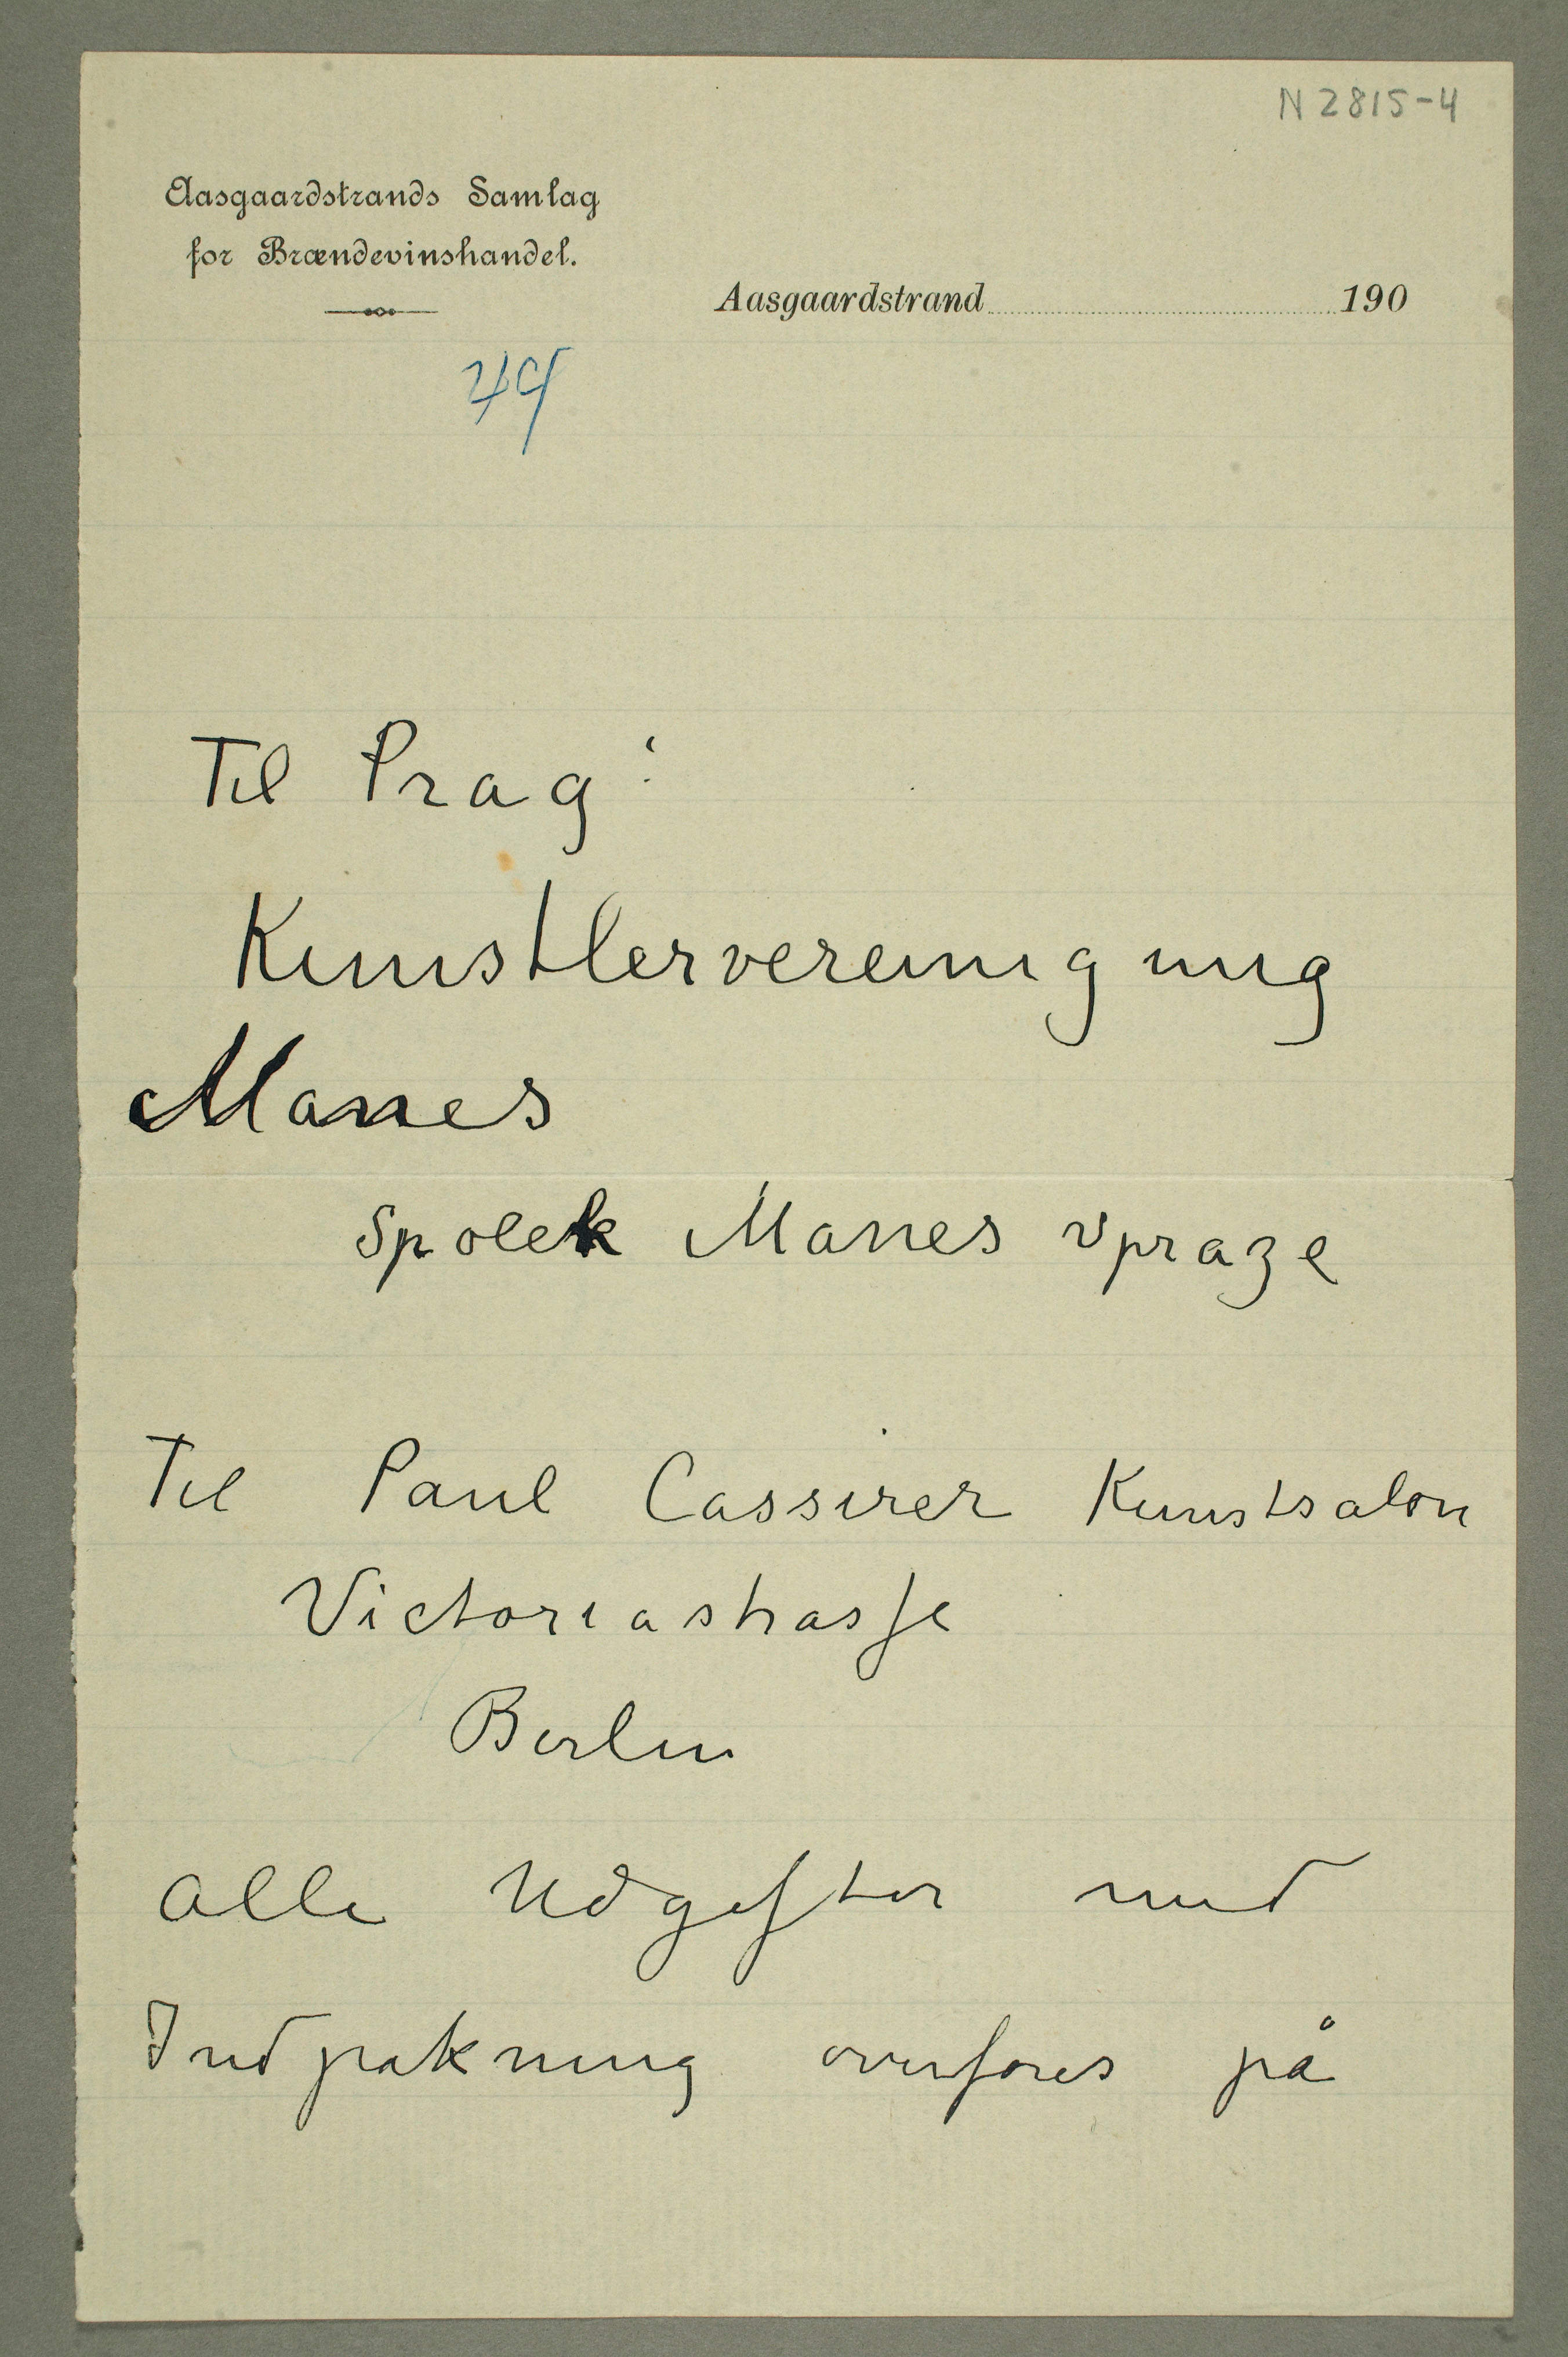 N 2815-4
Aasgaardstrands Samlag
for Brændevinshandel.
Aasgaardstrand 190
49
Til Prag:
Kunstlervereinigung
Manes
Spolek Manes v praze
Til Paul Cassirer Kunstsalon
Victoriastrasse
Berlin
Alle Udgifter med
Indpakning overføres på